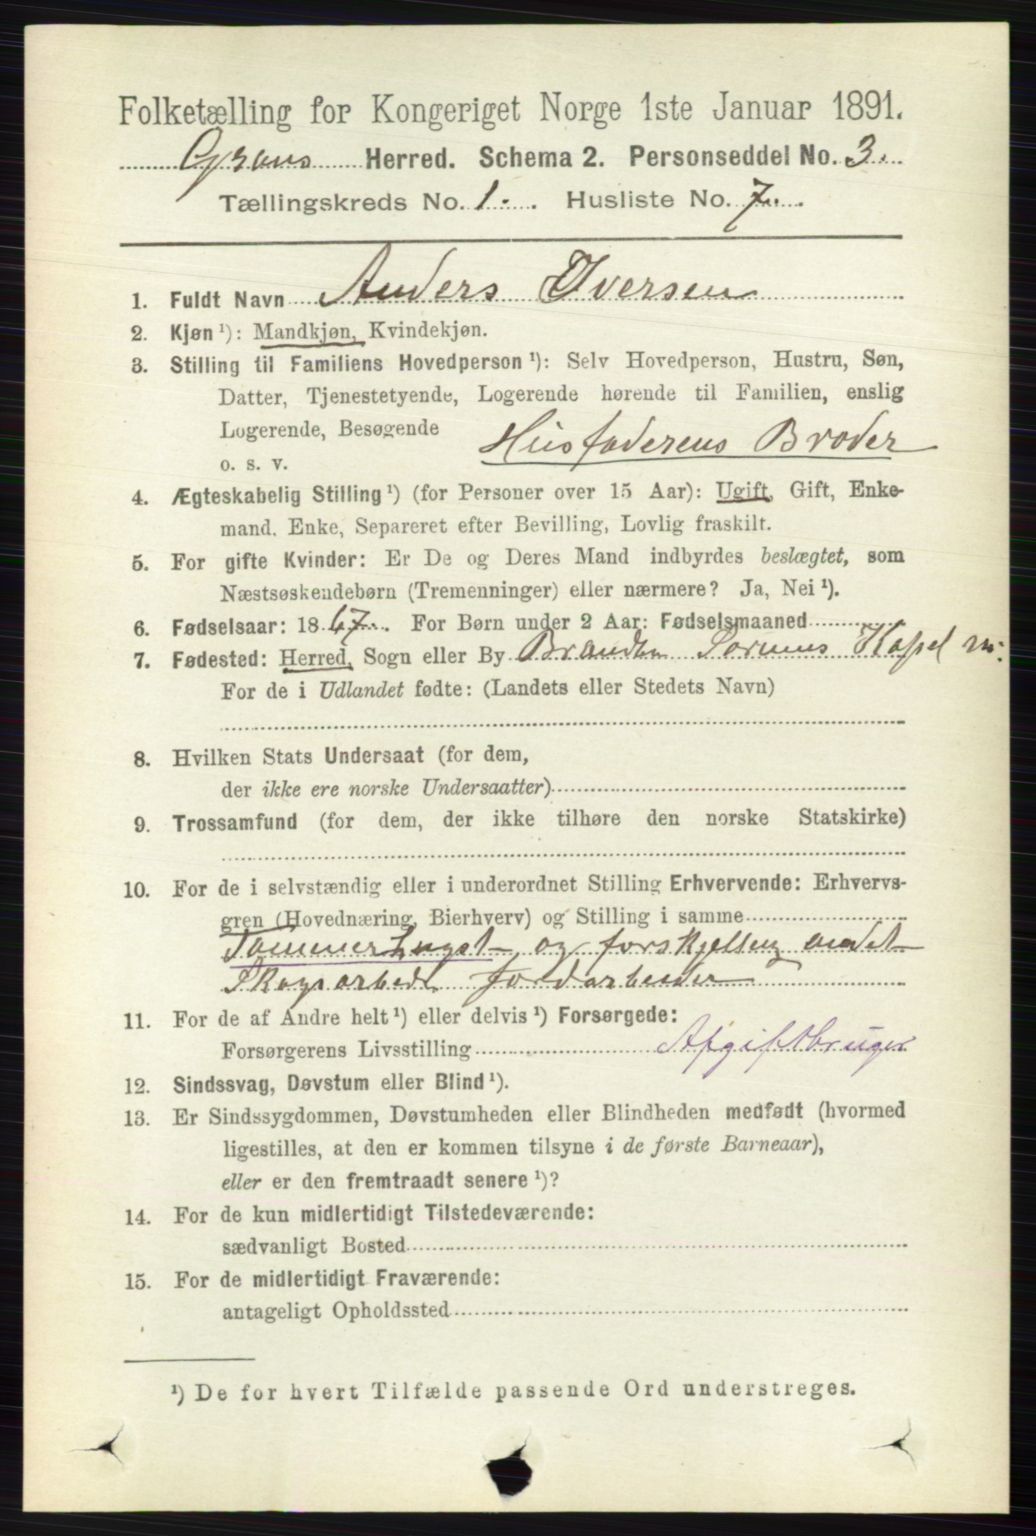 Folketælling for Kongeriget Norge 1ste Januar 1891.
Grans Herred. Schema 2. Personseddel No. 3.
Tællingskreds No. 1. Husliste No. 7.
1. Fuldt Navn Anders Iversen
2. Kjøn ¹): Mandkjøn, Kvindekjøn.
3. Stilling til Familiens Hovedperson ¹): Selv Hovedperson, Hustru, Søn,
Datter, Tjenestetyende, Logerende hørende til Familien, enslig
Logerende, Besøgende
o. s. v. Husfaderens Broder
4. Ægteskabelig Stilling ¹) (for Personer over 15 Aar): Ugift, Gift, Enke-
mand, Enke, Separeret efter Bevilling, Lovlig fraskilt.
5. For gifte Kvinder: Er De og Deres Mand indbyrdes beslægtet, som
Næstsøskendebørn (Tremenninger) eller nærmere? Ja, Nei ¹).
6. Fødselsaar: 1867. For Børn under 2 Aar: Fødselsmaaned
7. Fødested: Herred, Sogn eller By Brandbu Kapel
For de i Udlandet fødte: (Landets eller Stedets Navn)
8. Hvilken Stats Undersaat (for dem,
der ikke ere norske Undersaatter)
9. Trossamfund (for dem, der ikke tilhøre den norske Statskirke)
10. For de i selvstændig eller i underordnet Stilling Erhvervende: Erhvervs-
gren (Hovednæring, Bierhverv) og Stilling i samme
Tømmerhugst og forskjellig andet
Skogsarbeide Jordarbeider
11. For de af Andre helt ¹) eller delvis ¹) Forsørgede:
Forsørgerens Livsstilling Afgiftbruger
12. Sindssvag, Døvstum eller Blind ¹).
13. Er Sindssygdommen, Døvstumheden eller Blindheden medfødt (hvormed
ligestilles, at den er kommen tilsyne i de første Barneaar),
eller er den fremtraadt senere ¹)?
14. For de kun midlertidigt Tilstedeværende:
sædvanligt Bosted
15. For de midlertidigt Fraværende:
antageligt Opholdssted
¹) De for hvert Tilfælde passende Ord understreges.